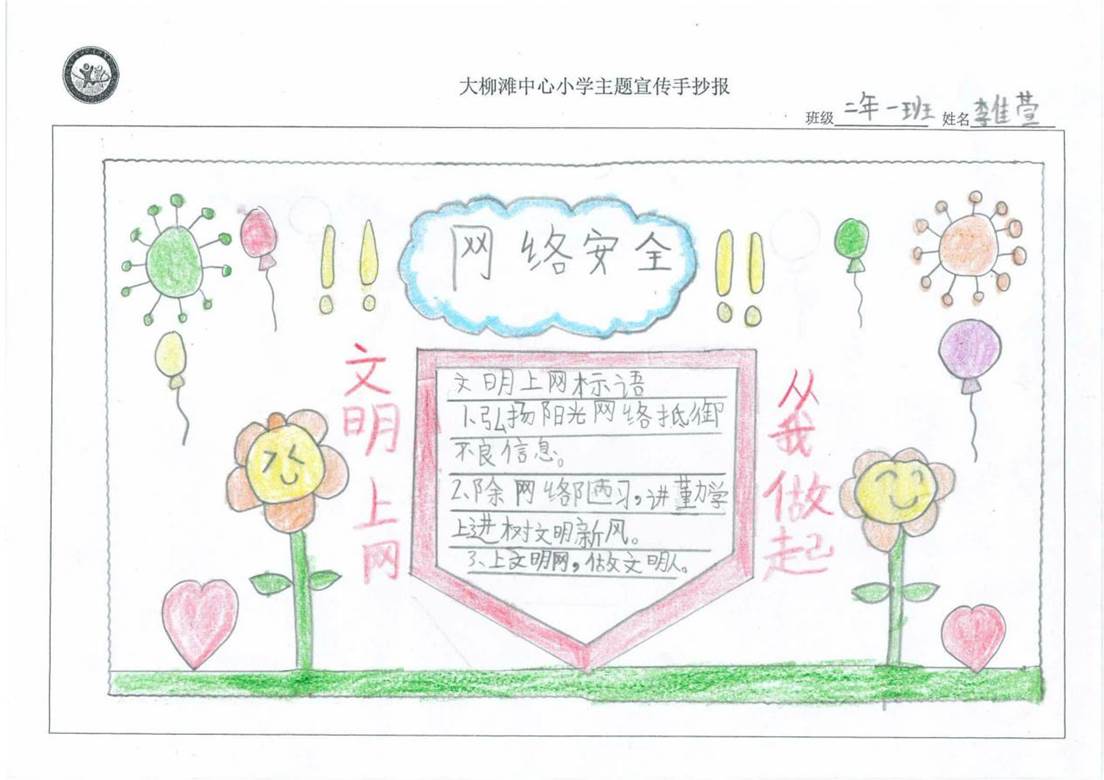 大柳滩中心小学主题宣传手抄报
班级 二年一班 姓名 李佳萱
网络安全
!! !!
文明上网
文明上网标语
1、弘扬阳光网络抵御
不良信息。
2、除网络陋习,讲勤学
上进树文明新风。
3、上文明网,做文明人。
从我做起